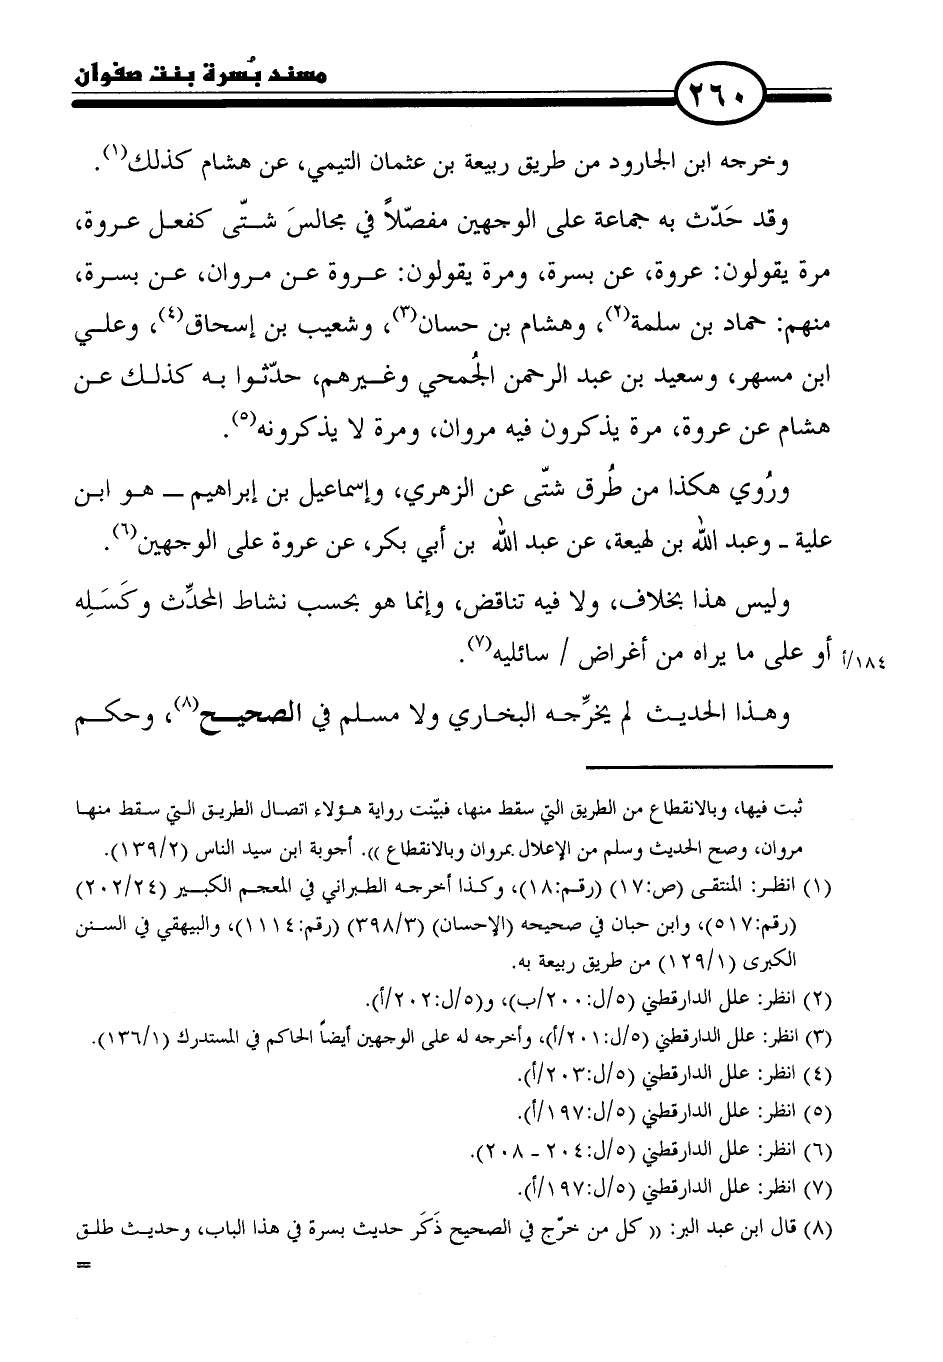 مسند بُسرة بنت صفوان
٢٦٠
وخرجه ابن الجارود من طريق ربيعة بن عثمان التيمي، عن هشام كذلك(١).
وقد حَدّث به جماعة على الوجهين مفصّلاً في مجالسَ شتّى كفعل عروة،
مرة يقولون: عروة، عن بسرة، ومرة يقولون: عروة عن مروان، عن بسرة،
منهم: حماد بن سلمة(٢)، وهشام بن حسان(٣)، وشعيب بن إسحاق(٤)، وعلي
ابن مسهر، وسعيد بن عبد الرحمن الجُمحي وغيرهم، حدّثوا به كذلك عن
هشام عن عروة، مرة يذكرون فيه مروان، ومرة لا يذكرونه(٥).
ورُوي هكذا من طُرق شتّى عن الزهري، وإسماعيل بن إبراهيم ــ هو ابن
علية ـ وعبد الله بن لهيعة، عن عبد الله بن أبي بكر، عن عروة على الوجهين(٦).
وليس هذا بخلاف، ولا فيه تناقض، وإنما هو بحسب نشاط المحدِّث وكَسَلِه
١٨٤/أ أو على ما يراه من أغراض / سائليه(٧).
وهذا الحديث لم يخرِّجه البخاري ولا مسلم في الصحيح(٨)، وحكم
ثبت فيها، وبالانقطاع من الطريق التي سقط منها، فبيّنت رواية هؤلاء اتصال الطريق التي سقط منها
مروان، وصح الحديث وسلم من الإعلال بمروان وبالانقطاع )). أجوبة ابن سيد الناس (١٣٩/٢).
(١) انظر: المنتقى (ص:١٧) (رقم:١٨)، وكذا أخرجه الطبراني في المعجم الكبير (٢٠٢/٢٤)
(رقم:٥١٧)، وابن حبان في صحيحه (الإحسان) (٣٩٨/٣) (رقم:١١١٤)، والبيهقي في السنن
الكبرى (١٢٩/١) من طريق ربيعة به.
(٢) انظر: علل الدارقطني (٥/ل:٢٠٠/ب)، و(٥/ل:٢٠٢/أ).
(٣) انظر: علل الدارقطني (٥/ل:٢٠١/أ)، وأخرجه له على الوجهين أيضاً الحاكم في المستدرك (١٣٦/١).
(٤) انظر: علل الدارقطني (٥/ل:٢٠٣/أ).
(٥) انظر: علل الدارقطني (٥/ل:١٩٧/أ).
(٦) انظر: علل الدارقطني (٥/ل:٢٠٤ ـ ٢٠٨).
(٧) انظر: علل الدارقطني (٥/ل:١٩٧/أ).
(٨) قال ابن عبد البر: (( كل من خرّج في الصحيح ذَكَر حديث بسرة في هذا الباب، وحديث طلق
=